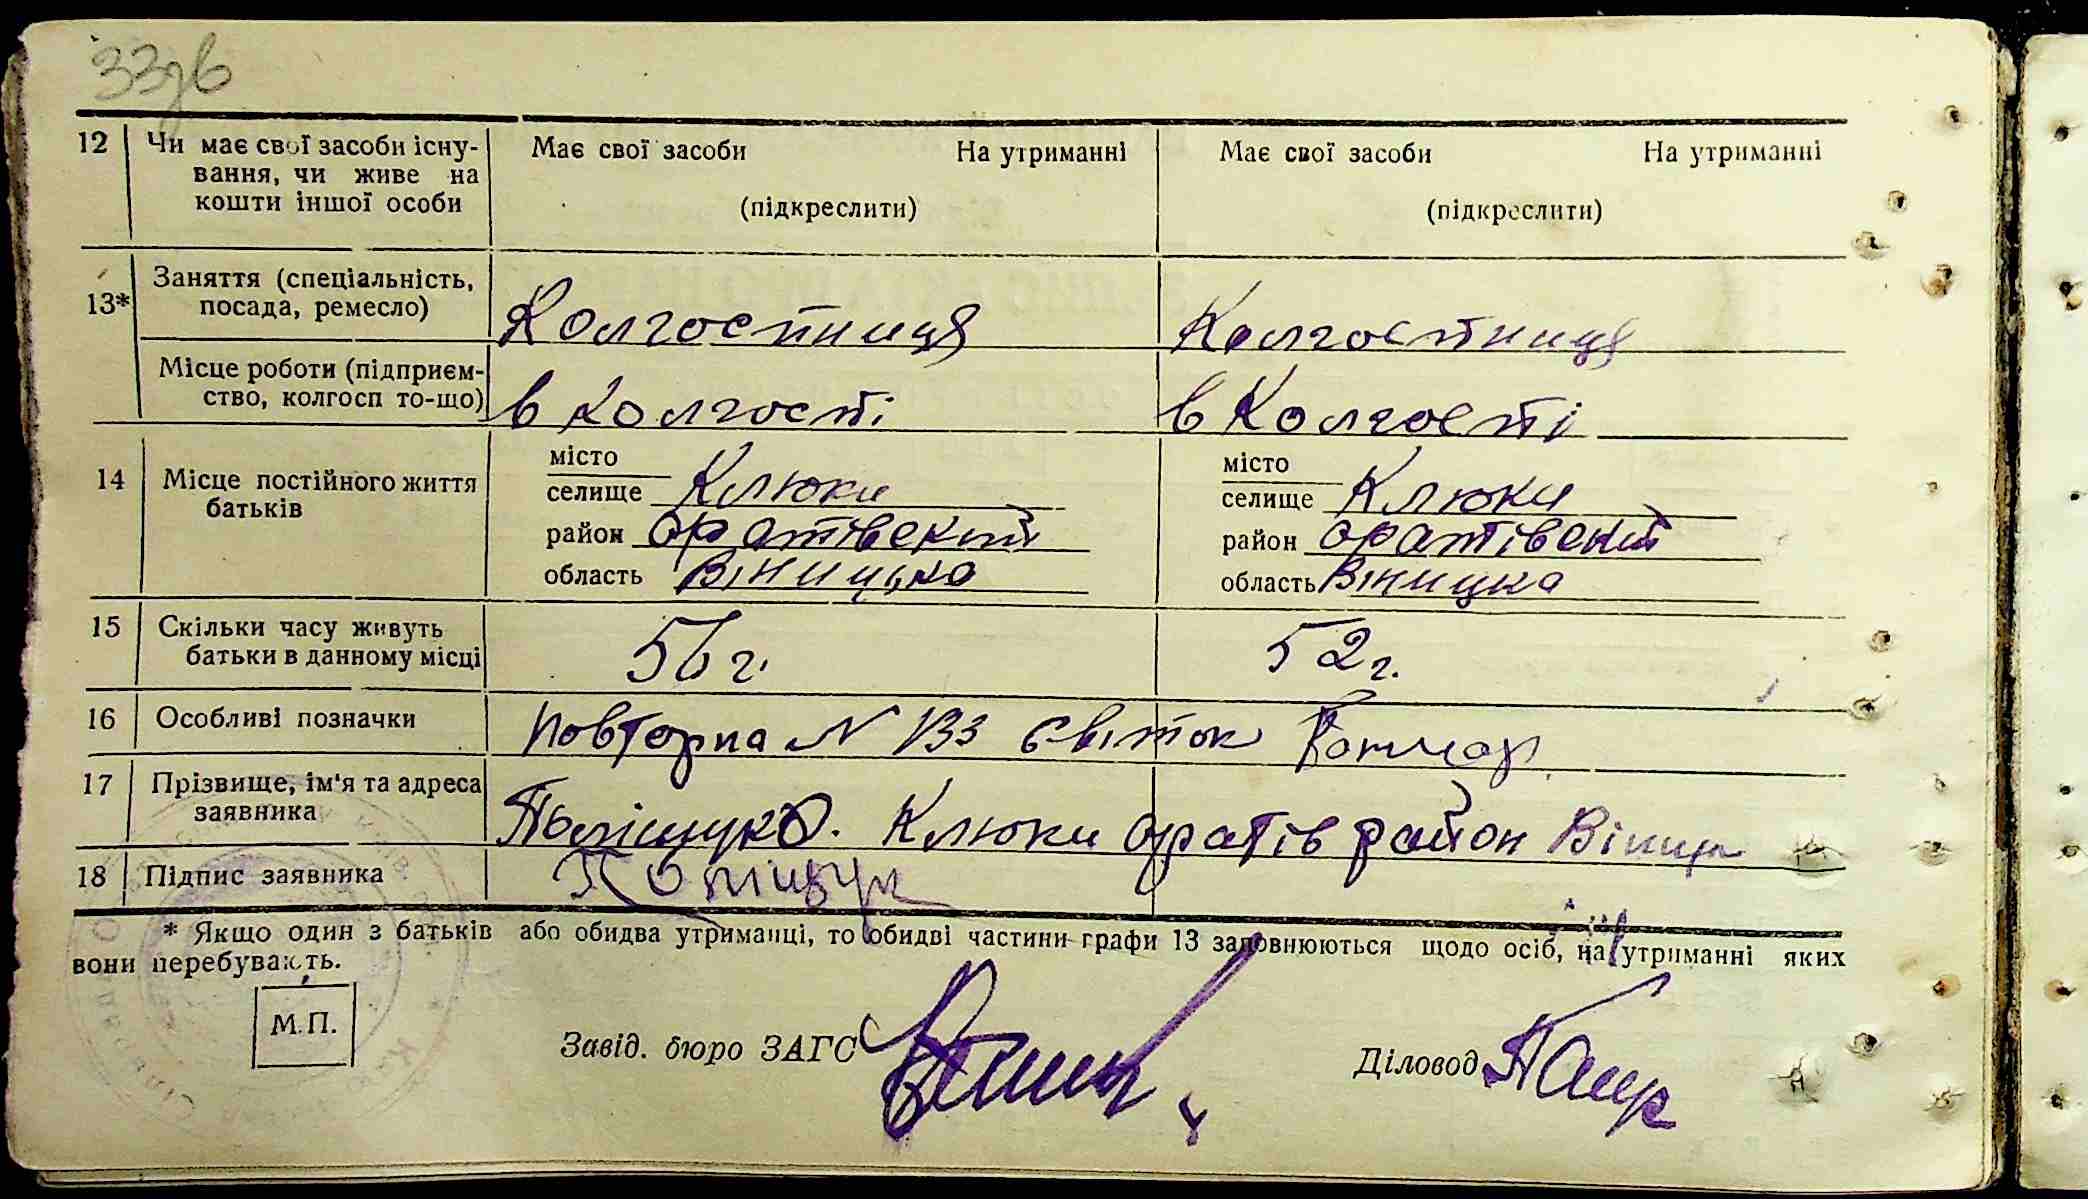 33зв
12 Чи має свої засоби існу- Має свої засоби На утриманні Має свої засоби На утриманні
вання, чи живе на
кошти іншої особи (підкреслити) (підкреслити)
13* Заняття (спеціальність,
посада, ремесло) Колгостниця Колгостниця
Місце роботи (підприєм-
ство, колгосп то-що) в Колгості в Колгості
14 Місце постійного життя
батьків
місто місто
селище Клюки селище Клюки
район оратівский район оратівский
область Віницька область Вніцка
15 Скільки часу живуть
батьки в данному місці 56 г. 52 г.
16 Особливі позначки Повторна N 133
17 Прізвище, ім'я та адреса
заявника Поліщук О. Клюки оратів район Віниц
18 Підпис заявника Поліщук
* Якщо один з батьків або обидва утриманці, то обидві частини графи 13 заповнюються щодо осіб, на утриманні яких
вони перебувають.
М.П.
Завід. бюро ЗАГС Діловод